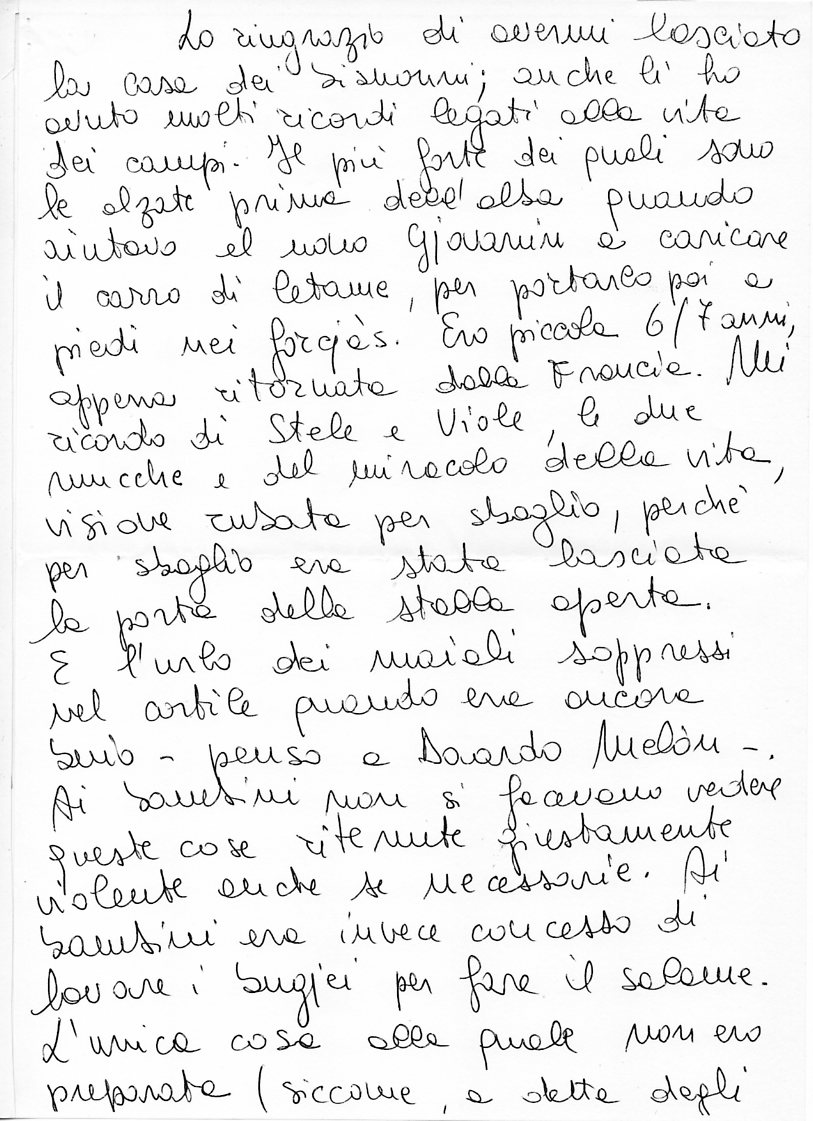 Lo ringrazio di avermi lasciato
la casa dei Sismonni; anche li ho
avuto molti ricordi legati alla vita
dei campi. Il più forte dei quali sono
le alzate prima dell'alba quando
aiutavo el nono Gjovanin a caricare
il carro di letame, per portarlo poi a
piedi nei forcjàs. Ero piccola 6/7 anni,
appena ritornata dalla Francia. Mi
ricordo di Stele e Viole, le due
mucche e del miracolo della vita,
visione rubata per sbaglio, perchè
per sbaglio era stata lasciata
la porta della stalla aperta.
E l'urlo dei maiali soppressi
nel cortile quando era ancora
buio - penso a Duardo Melòn -.
Ai bambini non si facevano vedere
queste cose ritenute giustamente
violente anche se necessarie. Ai
bambini era invece concesso di
lavare i bugjei per fare il salame.
L'unica cosa alla quale non ero
preparata (siccome, a detta degli